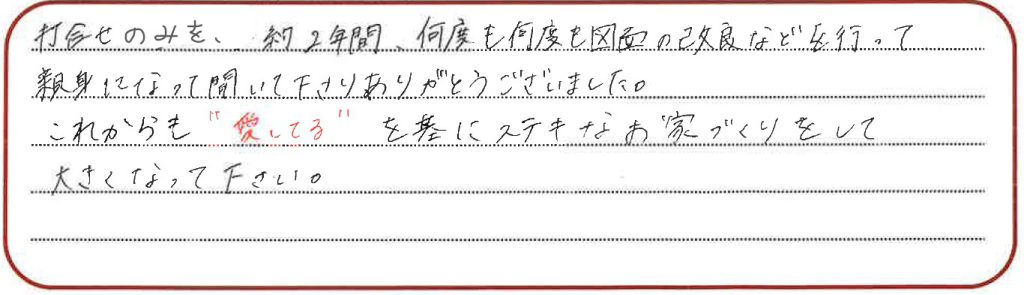 打合せのみを、約2年間、何度も何度も図面の改良などを行って
親身になって聞いて下さりありがとうございました。
これからも"愛してる"を基にステキなお家づくりをして
大きくなって下さい。